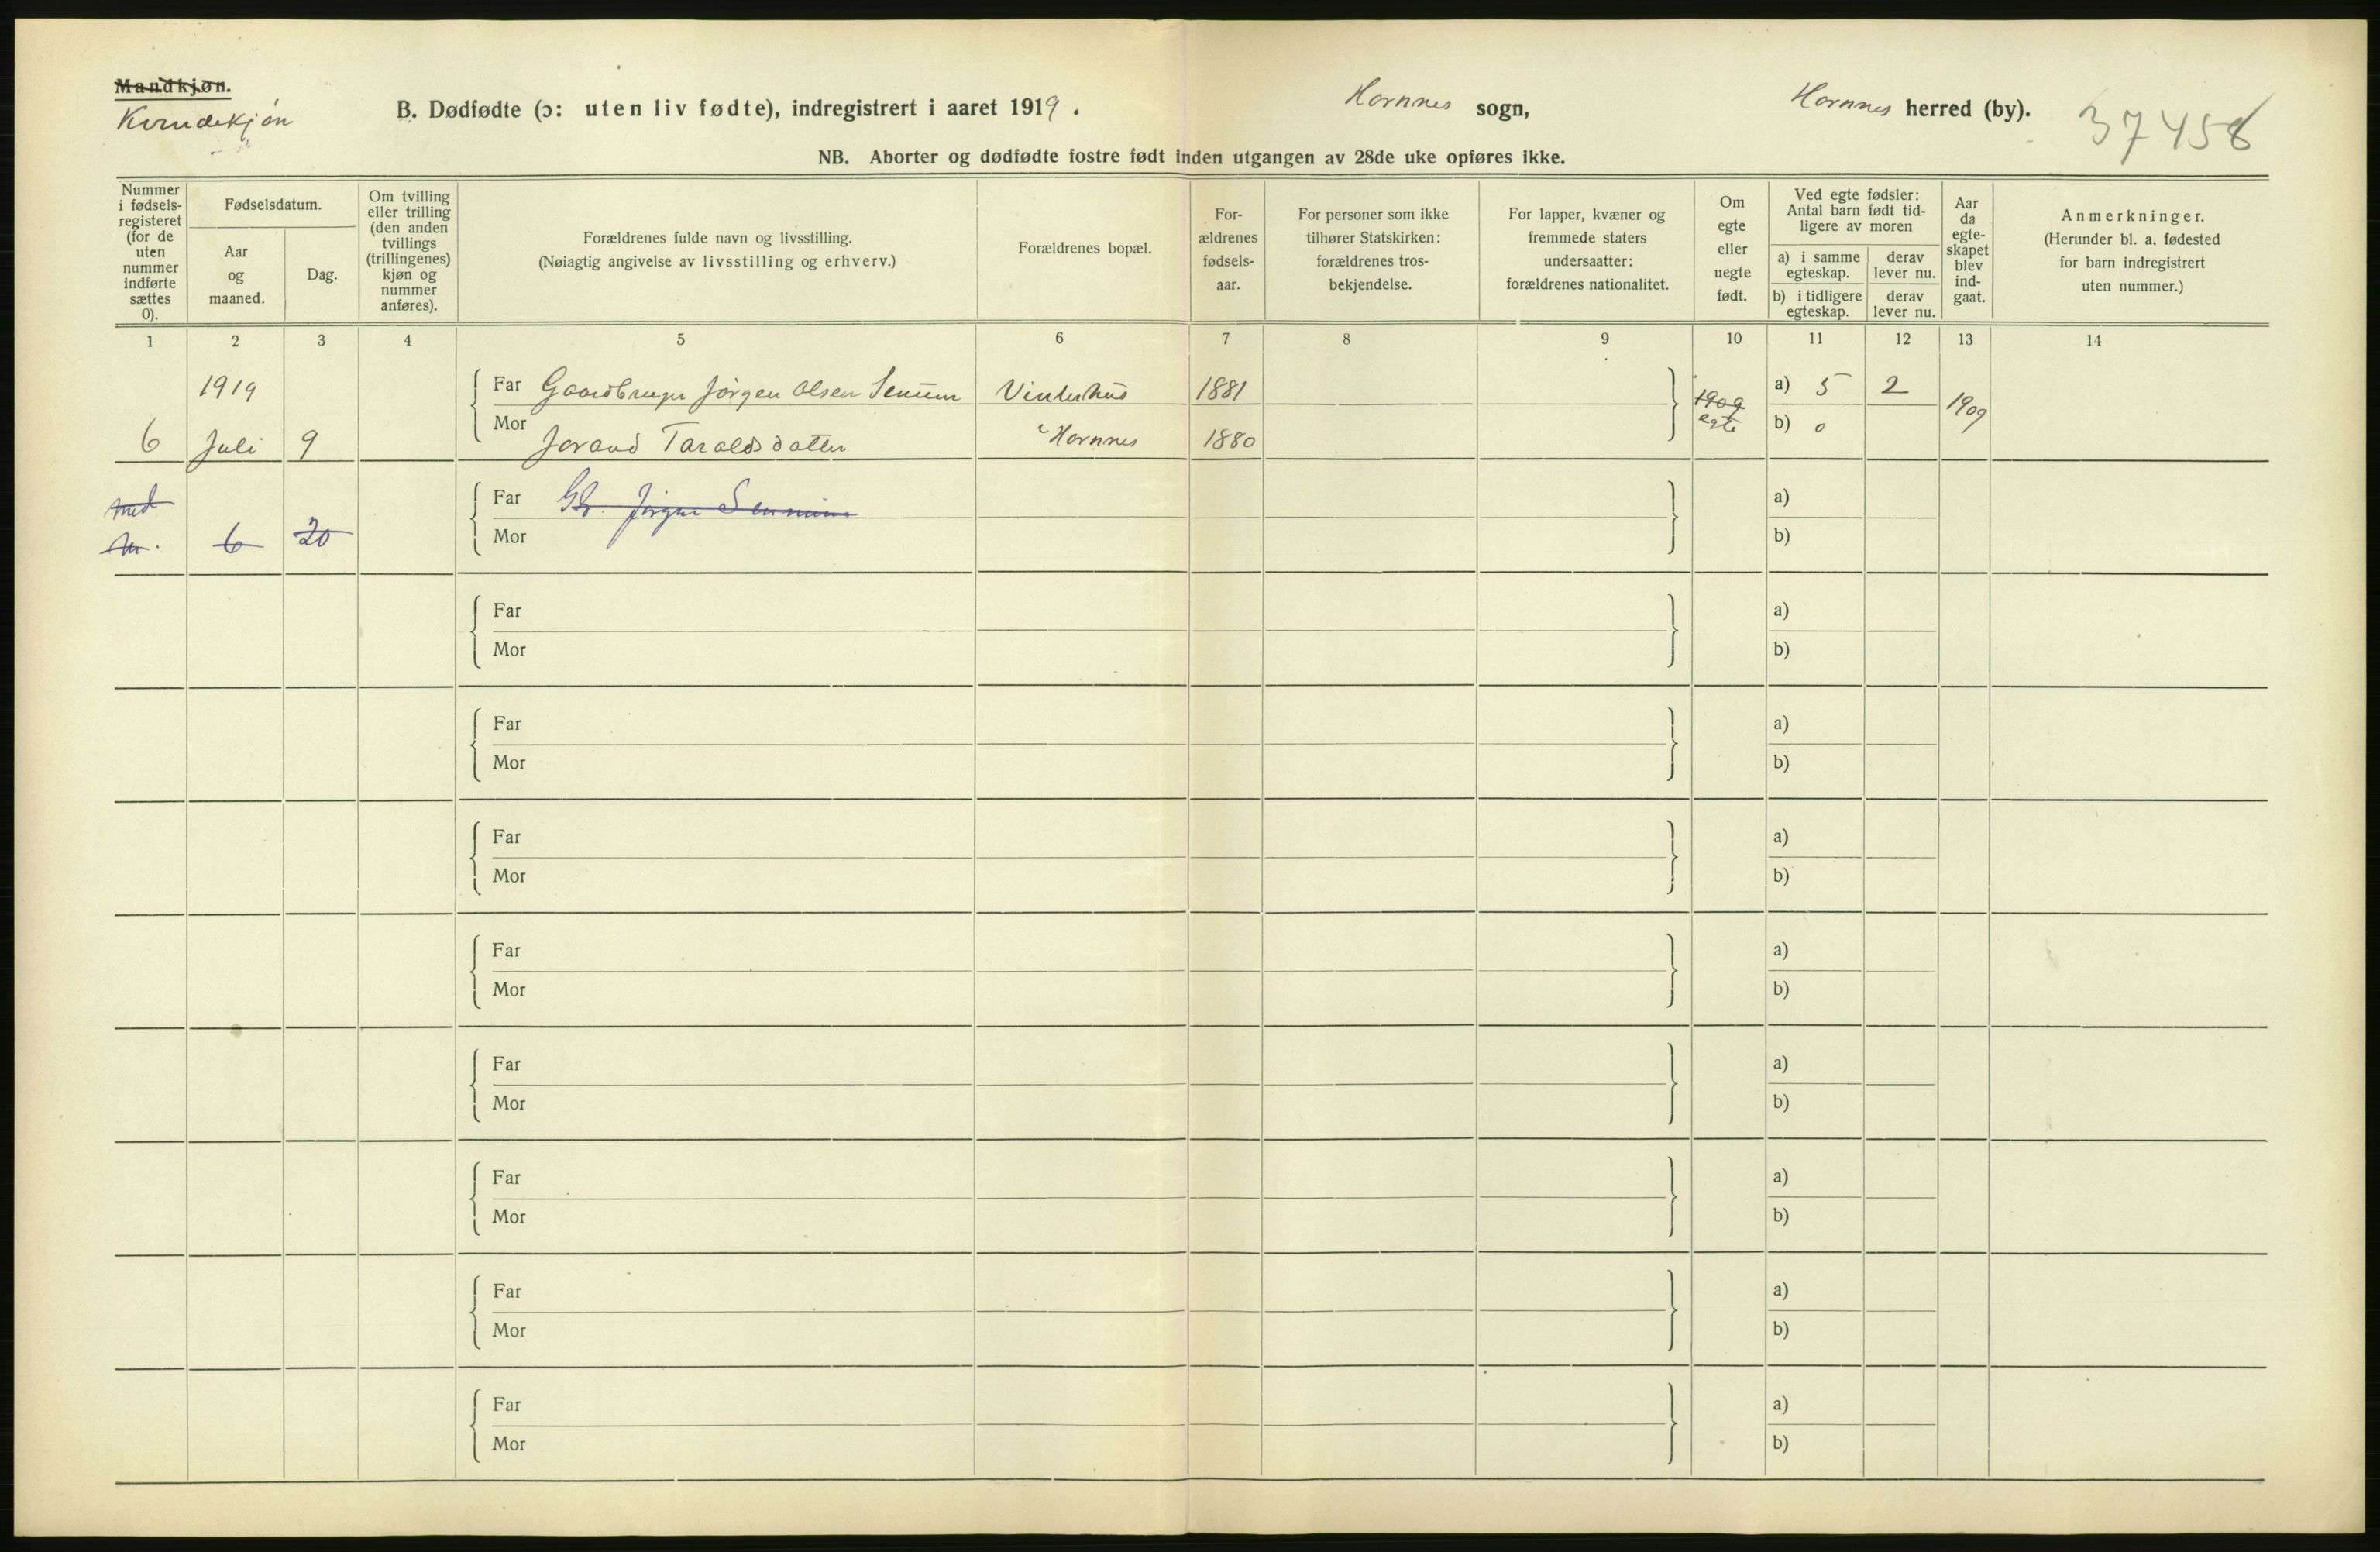 Mandkjøn.
Kvindekjøn
B. Dødfødte (ɔ: uten liv fødte), indregistrert i aaret 1919.
Hornnes sogn,
Hornnes herred (by).
37458
NB. Aborter og dødfødte fostre født inden utgangen av 28de uke opføres ikke.
Nummer
i fødsels-
registeret
(for de
uten
nummer
indførte
sættes
0).
Fødselsdatum.
Aar
og
maaned.
Dag.
Om tvilling
eller trilling
(den anden
tvillings
(trillingenes)
kjøn og
nummer
anføres).
Forældrenes fulde navn og livsstilling.
(Nøiagtig angivelse av livsstilling og erhverv.)
Forældrenes bopæl.
For-
ældrenes
fødsels-
aar.
For personer som ikke
tilhører Statskirken:
forældrenes tros-
bekjendelse.
For lapper, kvæner og
fremmede staters
undersaatter:
forældrenes nationalitet.
Om
egte
eller
uegte
født.
Ved egte fødsler:
Antal barn født tid-
ligere av moren
a) i samme
egteskap.
derav
lever nu.
b) i tidligere
egteskap.
derav
lever nu.
Aar
da
egte-
skapet
blev
ind-
gaat.
Anmerkninger.
(Herunder bl. a. fødested
for barn indregistrert
uten nummer.)
1 2 3 4 5 6 7 8 9 10 11 12 13 14
1919 Far Gaardbruger Jørgen Olsen Senum Vinterhus 1881 1909 a) 5 2 1909
6 Juli 9 Mor Jorand Taraldsdatter i Hornnes 1880 egte b) 0
med Far Gb. Jørgen Sennum a)
Nr. 6 20 Mor b)
Far a)
Mor b)
Far a)
Mor b)
Far a)
Mor b)
Far a)
Mor b)
Far a)
Mor b)
Far a)
Mor b)
Far a)
Mor b)
Far a)
Mor b)